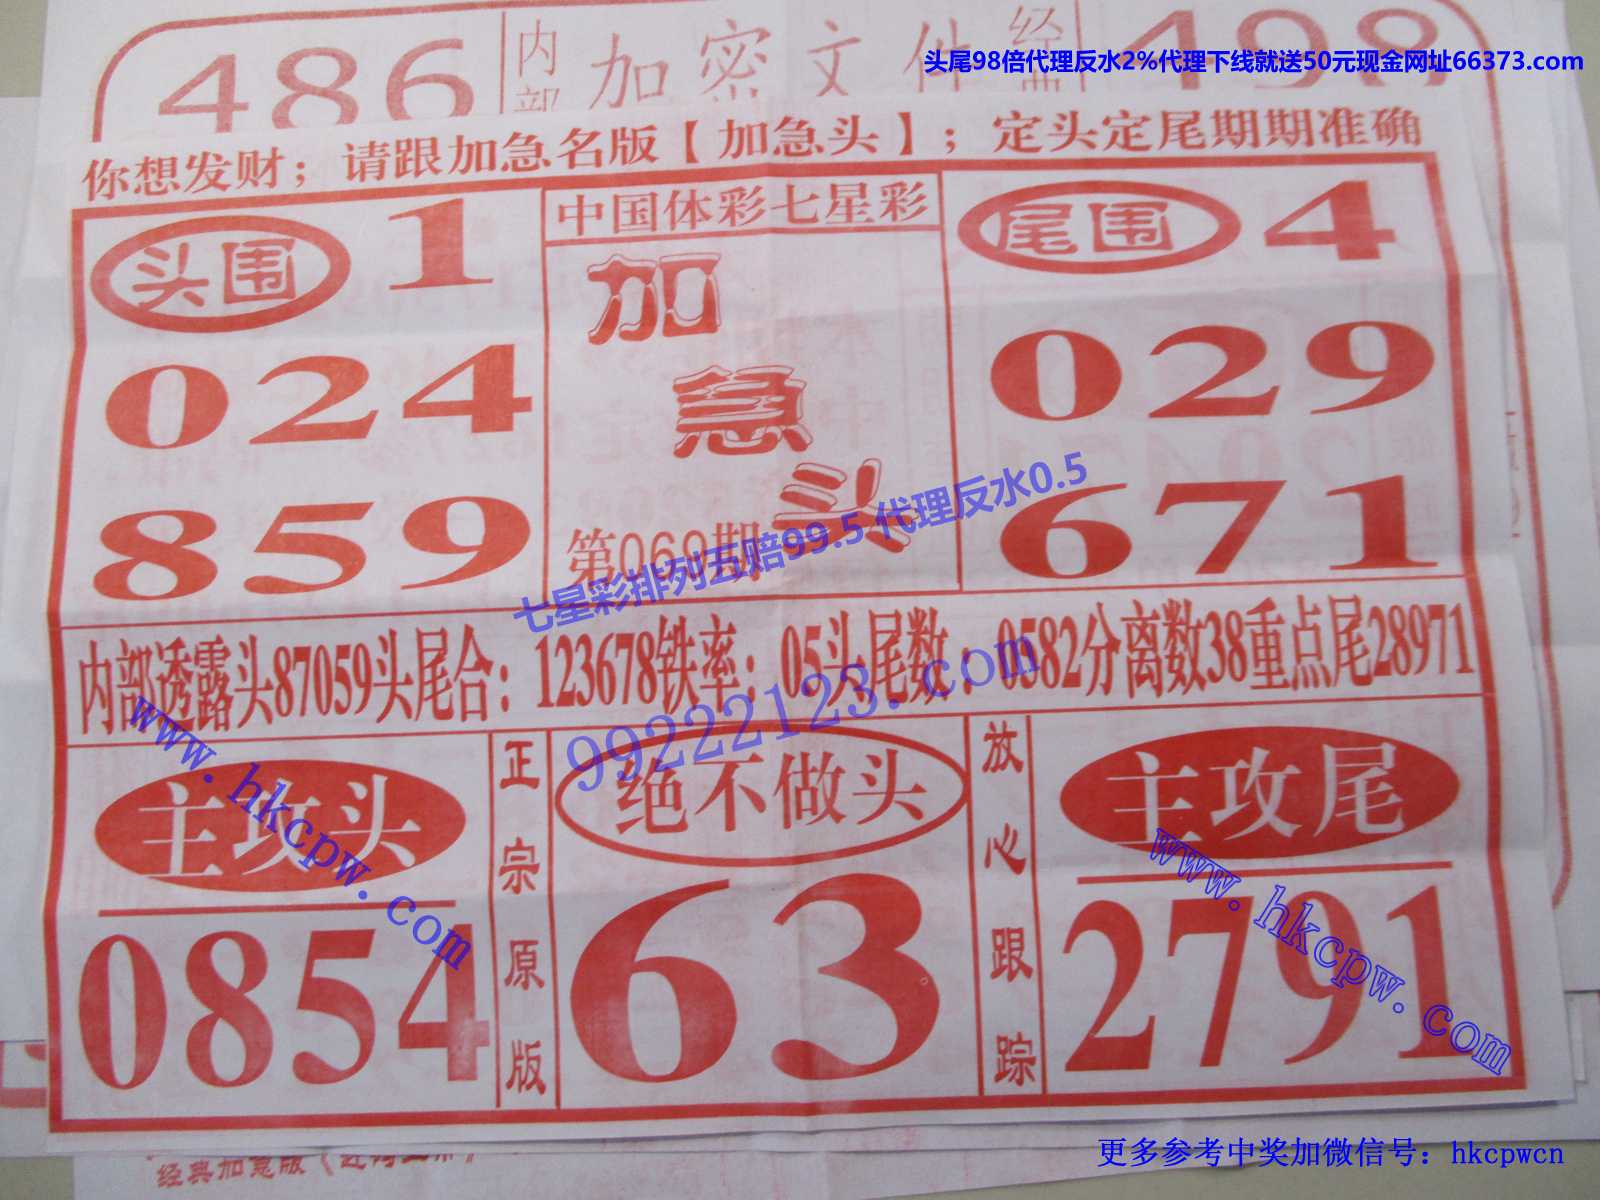 486 内部 加密文件 经 498
头尾98倍代理反水2%代理下线就送50元现金网址66373.com
你想发财；请跟加急名版【加急头】；定头定尾期期准确
头围 1
024
859
中国体彩七星彩
加
急
头
第069期
尾围 4
029
671
七星彩排列五赔99.5 代理反水0.5
内部透露头87059头尾合：123678铁率；05头尾数：0582分离数38重点尾28971
99222123.com
www.hkcpw.com
主攻头
0854
正宗原版
绝不做头
63
放心跟踪
主攻尾
2791
www.hkcpw.com
更多参考中奖加微信号：hkcpwcn
经典加急版